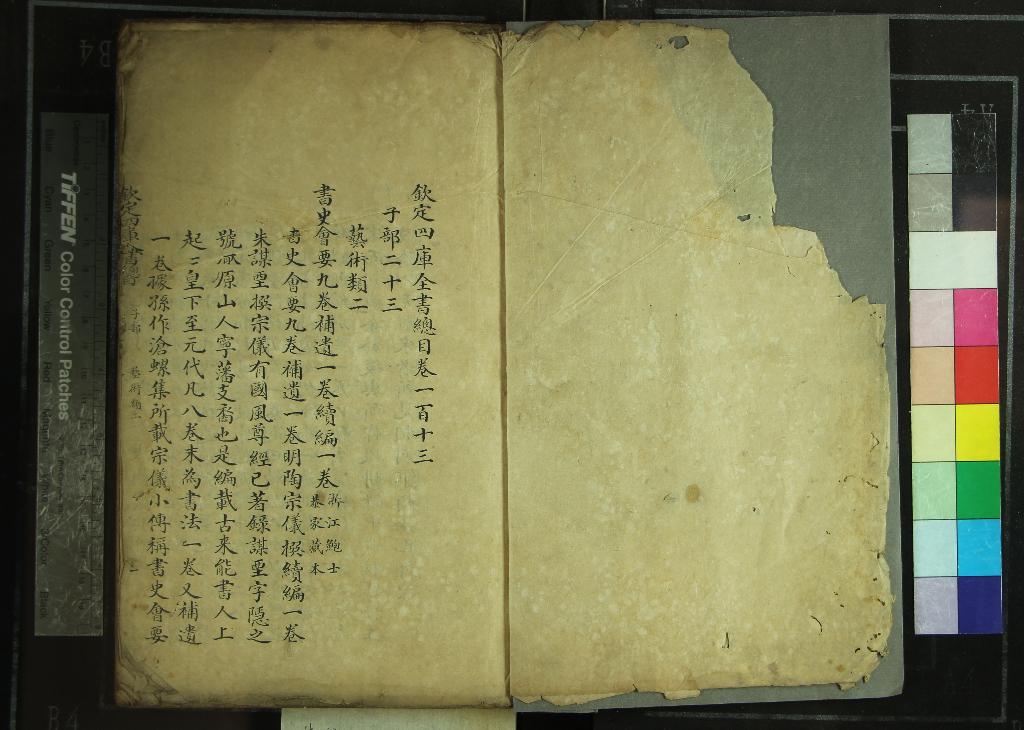 欽定四庫全書總目卷一百十三
子部二十三
藝術類二
書史會要九卷補遺一卷續編一卷浙江鮑士恭家藏本
書史會要九卷補遺一卷明陶宗儀撰續編一卷
朱謀垔撰宗儀有國風尊經已著錄謀垔字隱之
號厭原山人寧藩支裔也是編載古来能書人上
起三皇下至元代凡八卷末為書法一卷又補遺
一卷據孫作滄螺集所載宗儀小傳稱書史會要
欽定四庫全書總目
子部
藝術類二
一
TIFFEN Color Control Patches
Blue
Cyan
Green
Yellow
Red
Magenta
Black
B4
A4
B4
A4